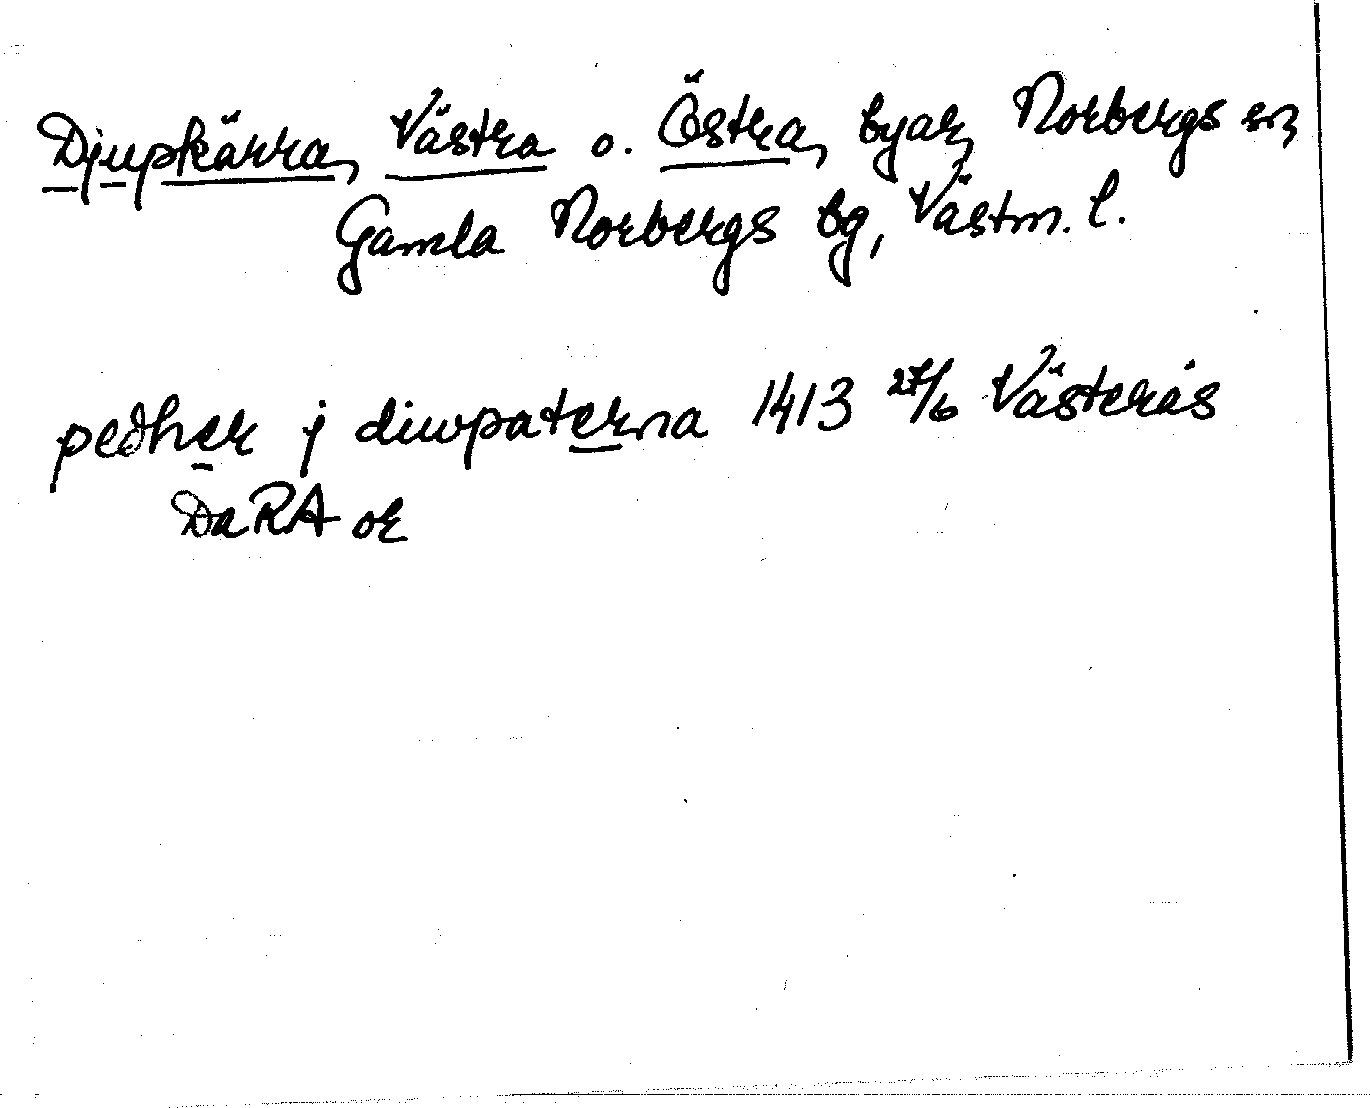 Djupkärra, Västra o. Östra, byar, Norbergs sn,
Gamla Norbergs bg, Västm. l.
pedher j diwpaterna 1413 27/6 Västerås
DaRA or